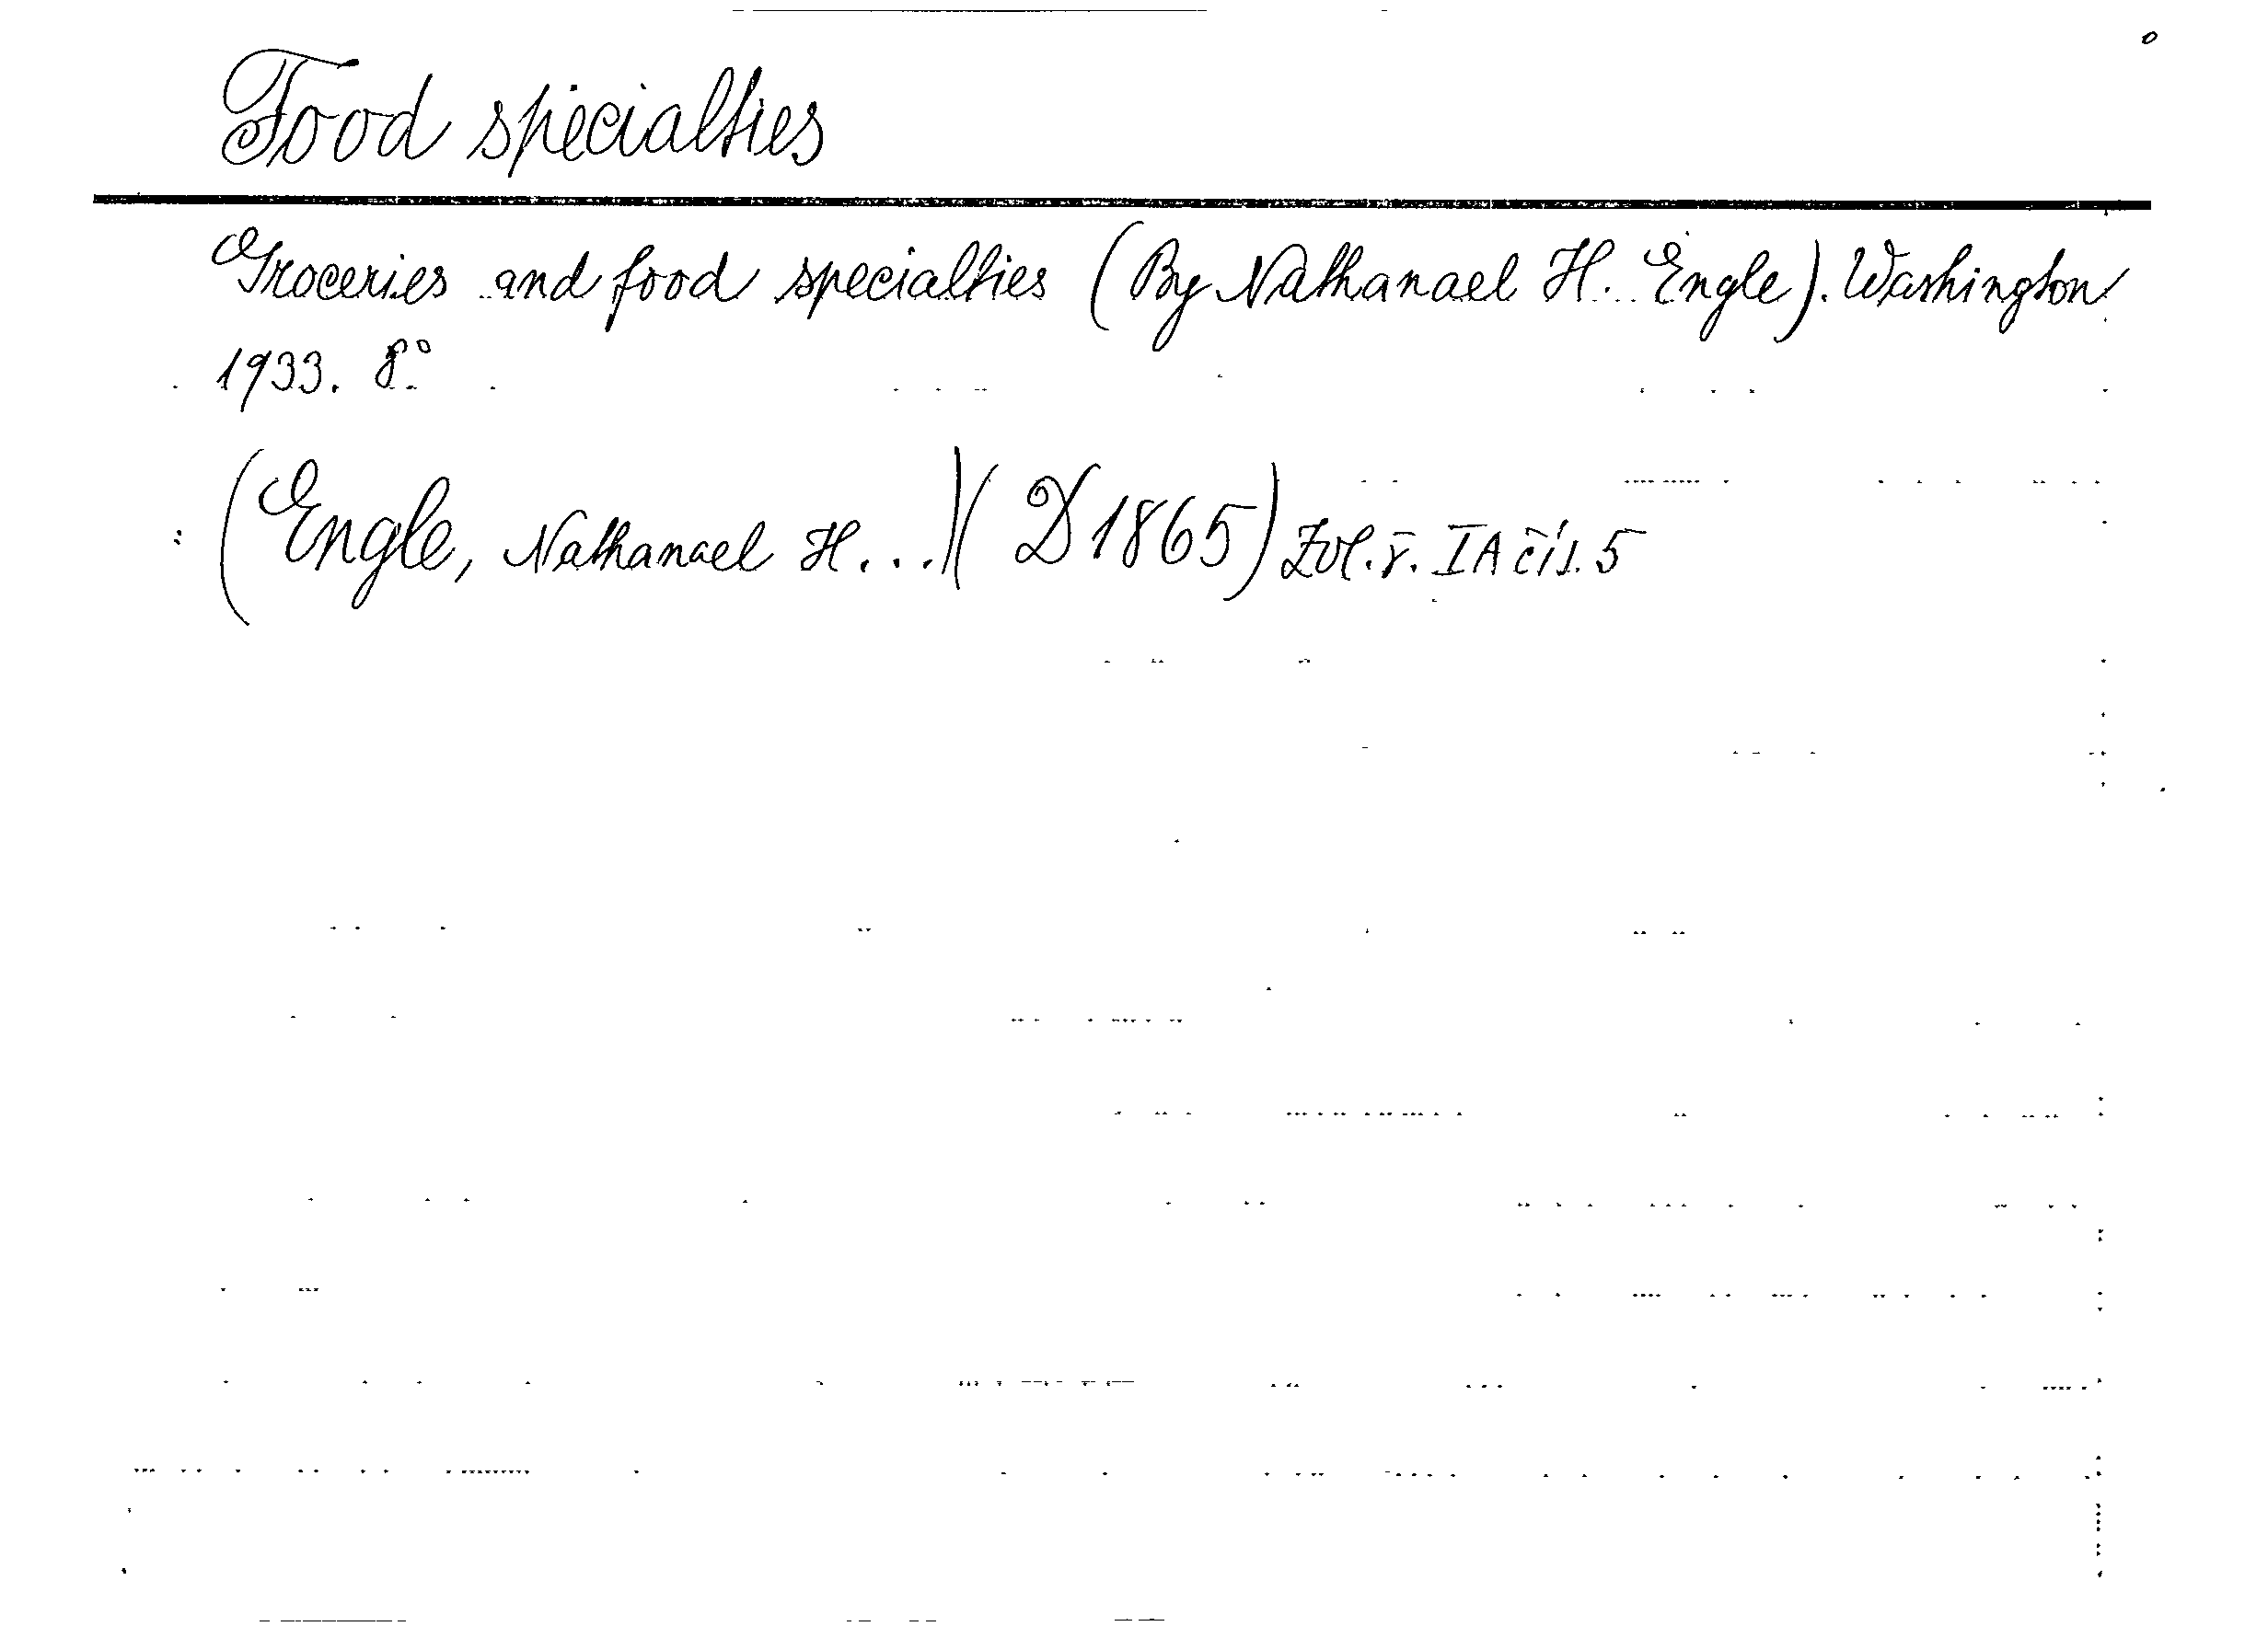 Food specialties
Groceries and food specialties (By Nathanael H. Engle). Washington
1933. 8°
(Engle, Nathanael H...)(D 1865) Zvl. ř. IA čís. 5